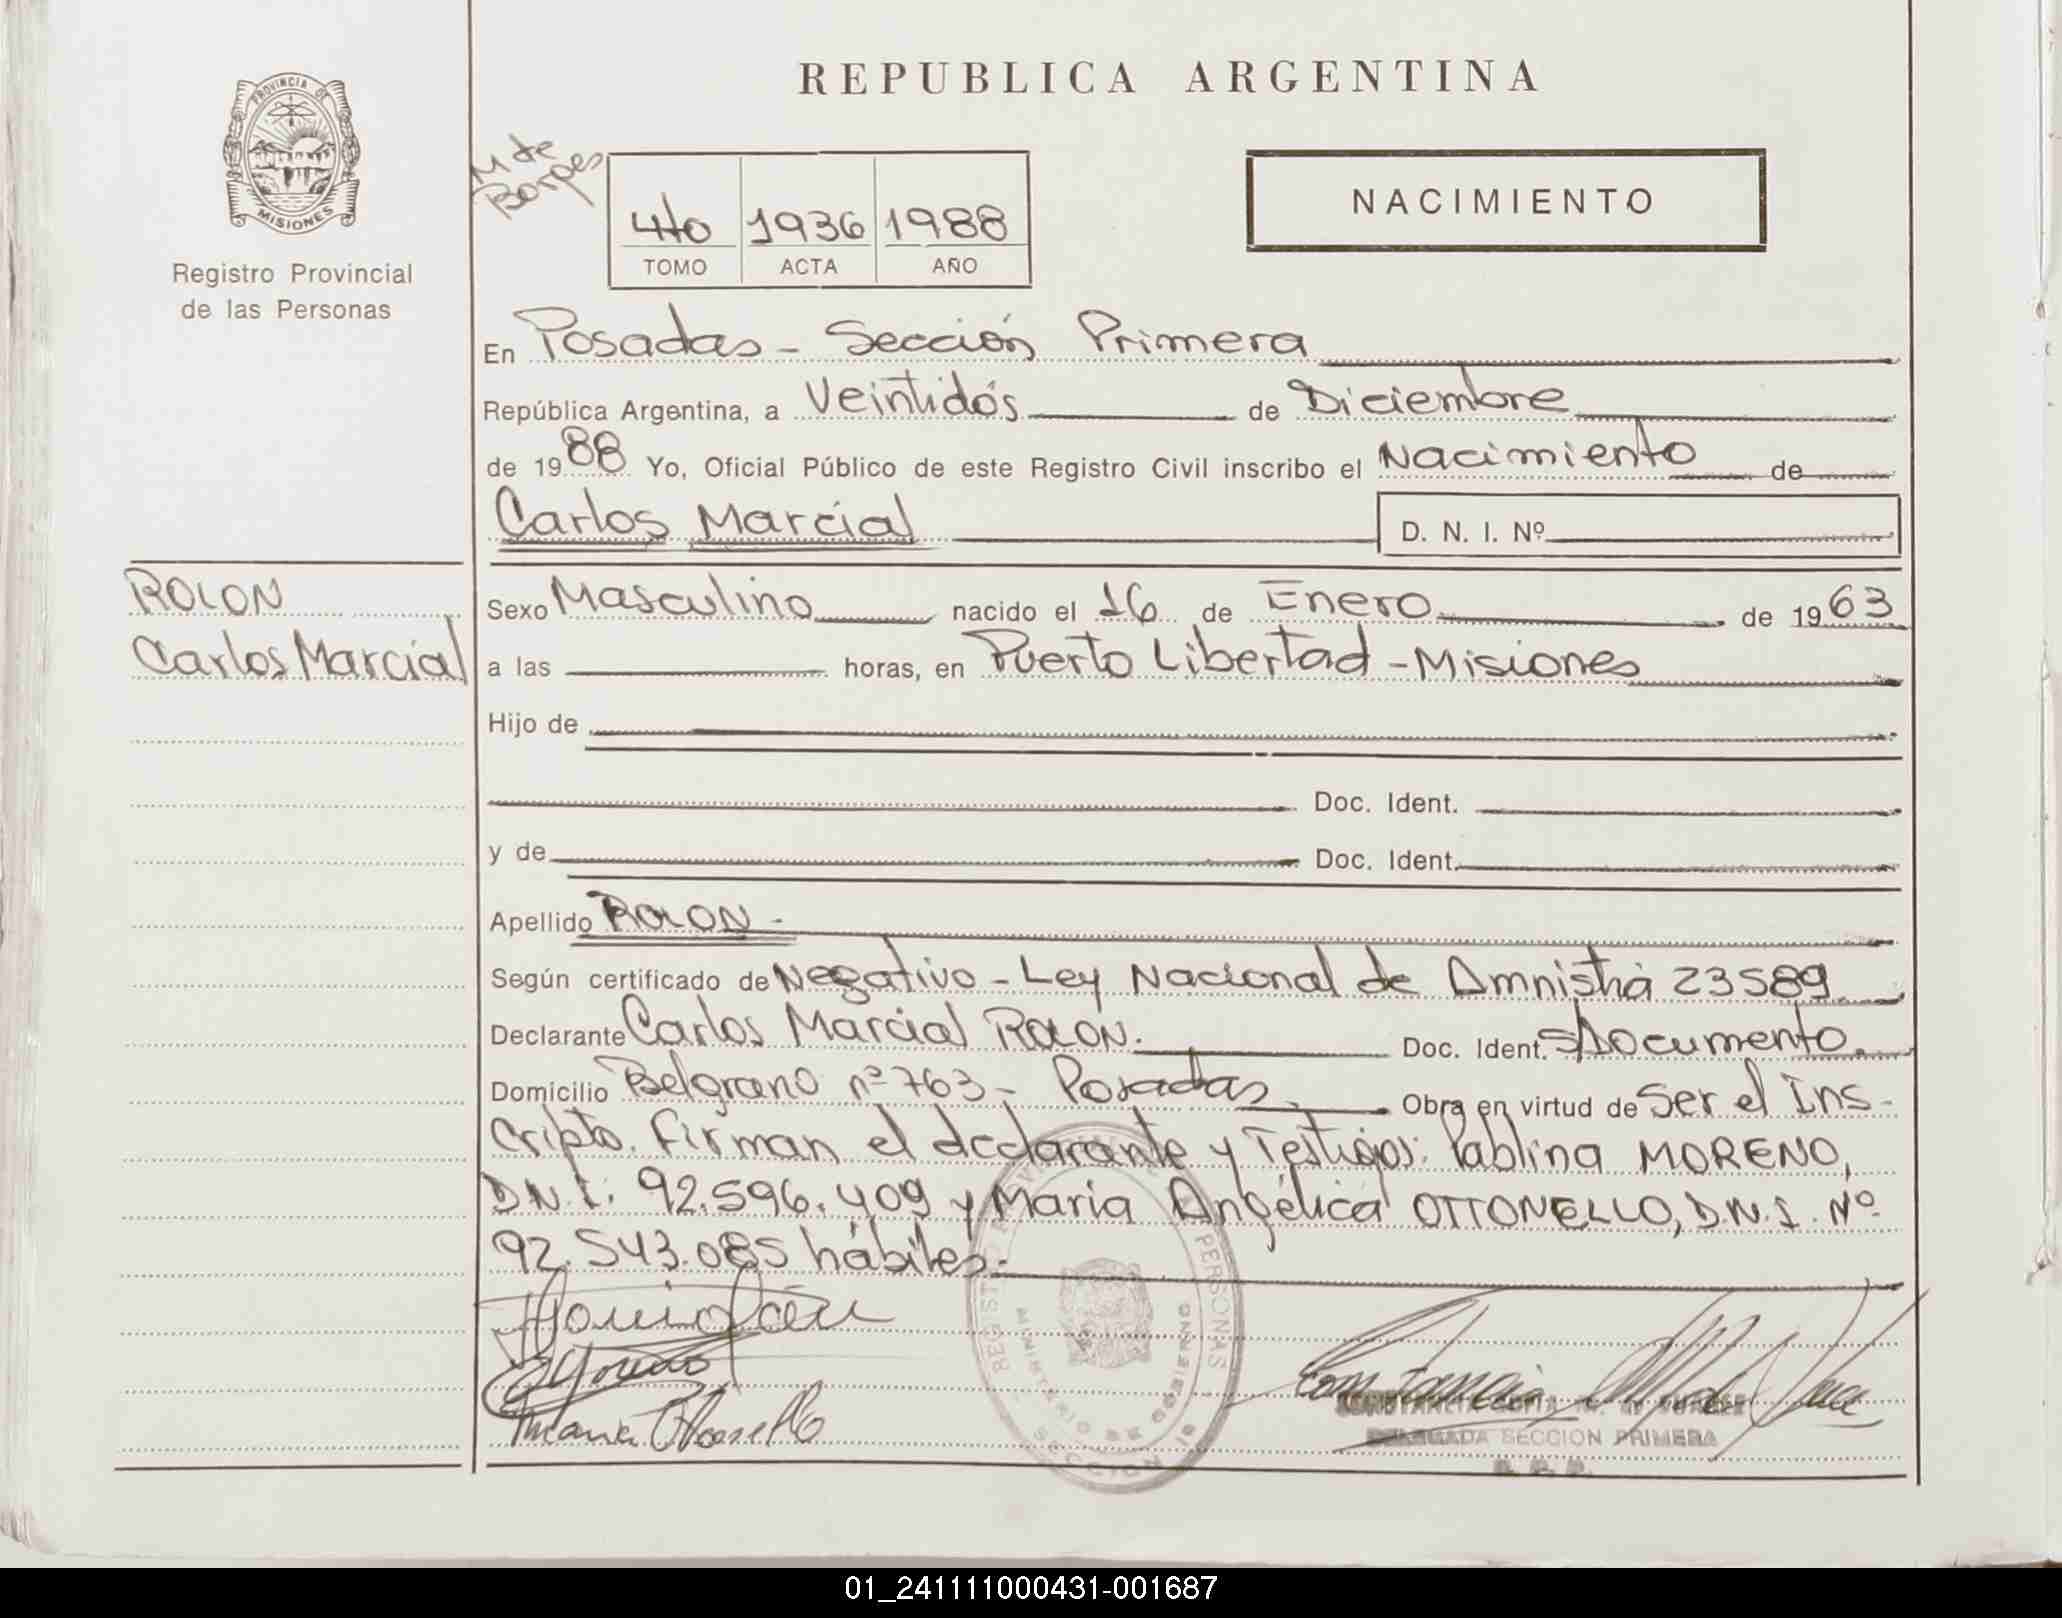 PROVINCIA DE
MISIONES
Registro Provincial
de las Personas
REPUBLICA ARGENTINA
M de
Borges
4to 1936 1988
TOMO ACTA AÑO
NACIMIENTO
En Posadas - Sección Primera
República Argentina, a Veintidós de Diciembre
de 1988 Yo, Oficial Público de este Registro Civil inscribo el Nacimiento de
Carlos Marcial D. N. I. Nº
ROLON
Carlos Marcial
Sexo Masculino nacido el 16 de Enero de 1963
a las horas, en Puerto Libertad - Misiones
Hijo de
Doc. Ident.
y de Doc. Ident.
Apellido ROLON -
Según certificado de Negativo - Ley Nacional de Amnistía 23589
Declarante Carlos Marcial ROLON. Doc. Ident. S/Documento.
Domicilio Belgrano nº 763 - Posadas. Obra en virtud de Ser el Ins-
cripto. Firman el declarante y Testigos: Pablina MORENO,
D.N.I. 92.596.409 y María Angélica OTTONELLO, D.N.I. Nº
92.543.085 hábiles.
REGISTRO PERSONAS
MINISTERIO DE GOBIERNO
SECCION 1ª
DELEGADA SECCION PRIMERA
R. P. P.
01_241111000431-001687